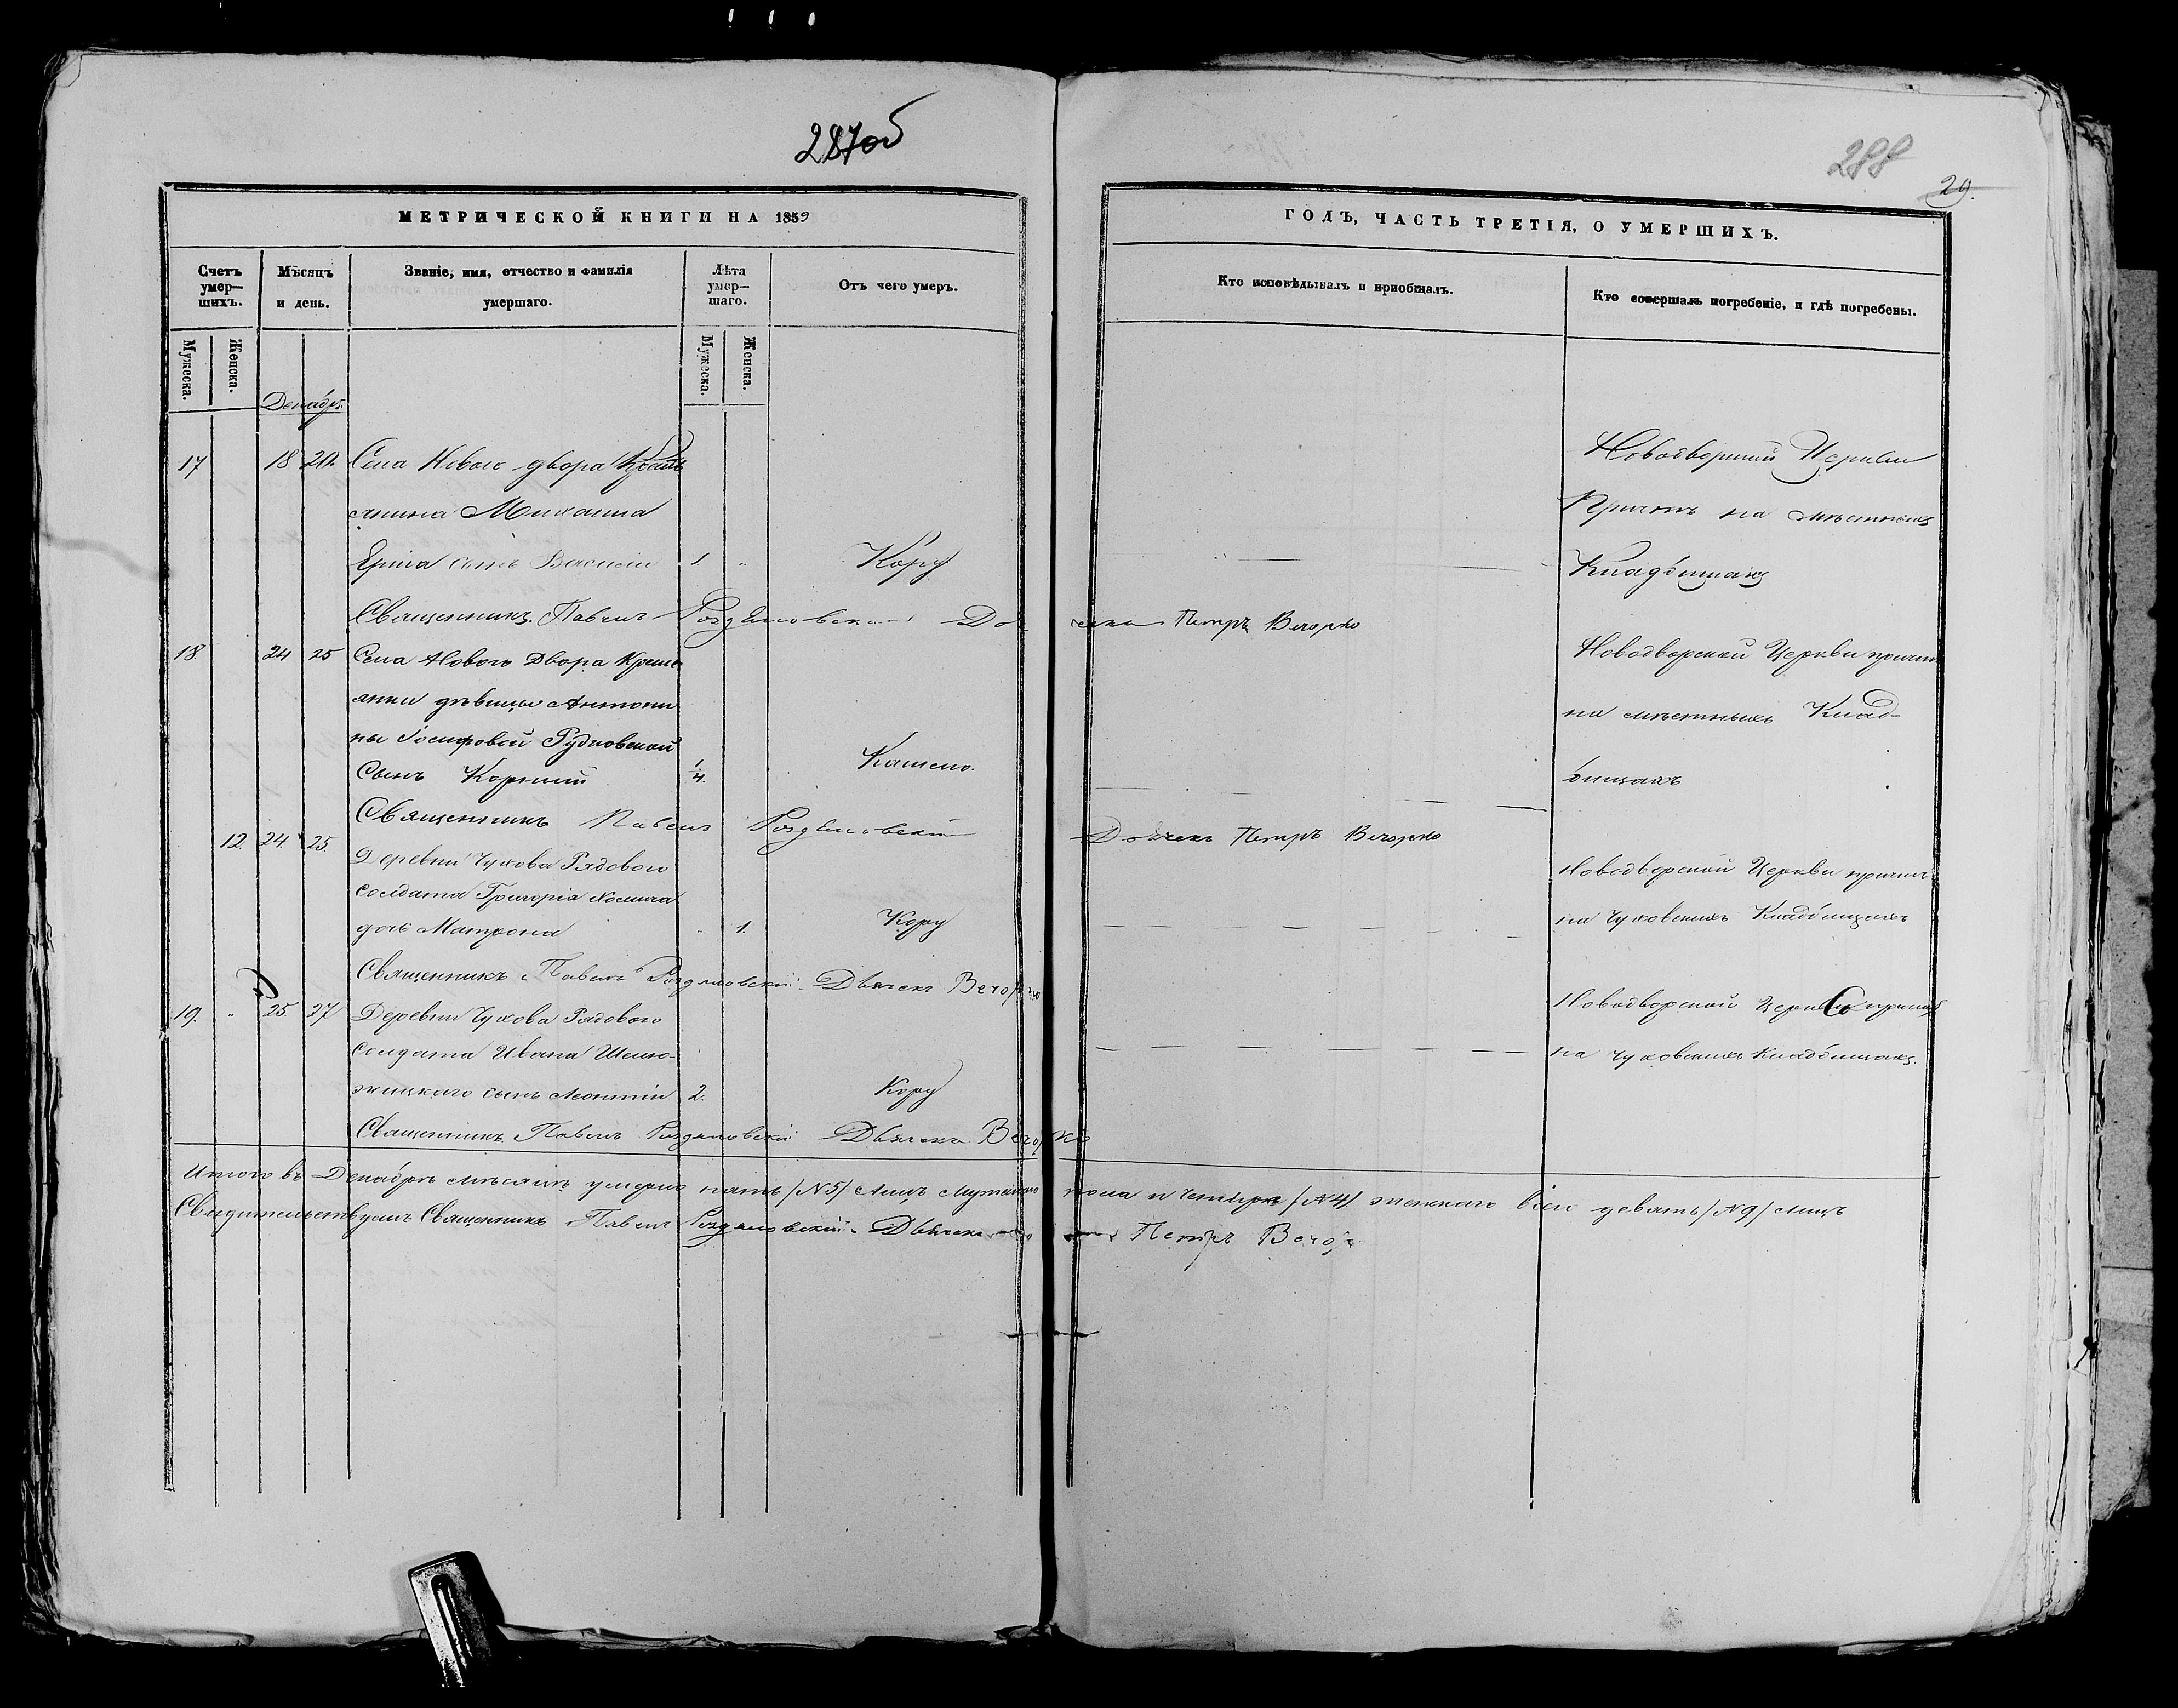 287об
МЕТРИЧЕСКОЙ КНИГИ НА 1859
Счетъ умер—шихъ.
Мѣсяцъ и день.
Званіе, имя, отчество и фамилія умершаго.
Лѣта умер—шаго.
Отъ чего умеръ.
Мужеска.
Женска.
Мужеска.
Женска.
Декабрь
17 18 20. Села Новаго двора Кресть
янина Михаила
сынъ Василій 1. „ Кору
Священникъ Павелъ
18. 24 25 Села Новаго Двора Кресть
янки дѣвицы Антони
ны Іосифовой Рудковской
Сынъ Корнилій 1/4. Кашелю.
Священникъ Павелъ
12. 24. 25. Деревни Чухова Рядового
солдата Григорія Хомича
дочь Матрона „ 1. Кору
Священникъ Павелъ Дьячекъ Вечорко
19. „ 25. 27 Деревни Чухова Рядового
солдата Ивана Шело-
жицкаго сынъ Леонтій 2. Кору
Священникъ Павелъ Дьячекъ Вечорко
Итого въ Декабрѣ мѣсяцѣ умерло пять /№5/ лицъ мужескаго
Свидѣтельствуемъ Священникъ Павелъ Дьячекъ
288
29.
ГОДЪ, ЧАСТЬ ТРЕТІЯ, О УМЕРШИХЪ.
Кто исповѣдывалъ и пріобщалъ.
Кто совершалъ погребеніе, и гдѣ погребены.
Новодворской Церкви
Причтъ на мѣстныхъ
Кладбищахъ
Петръ Вечорко
Новодворской Церкви причтъ
на мѣстныхъ Клад-
бищахъ
Дьячекъ Петръ Вечорко
Новодворской Церкви причтъ
на Чуховскихъ Кладбищахъ
Новодворской Церкви причтъ
на Чуховскихъ Кладбищахъ.
пола и четыре /№4/ женскаго всего девять /№9/ лицъ
Петръ Вечорко